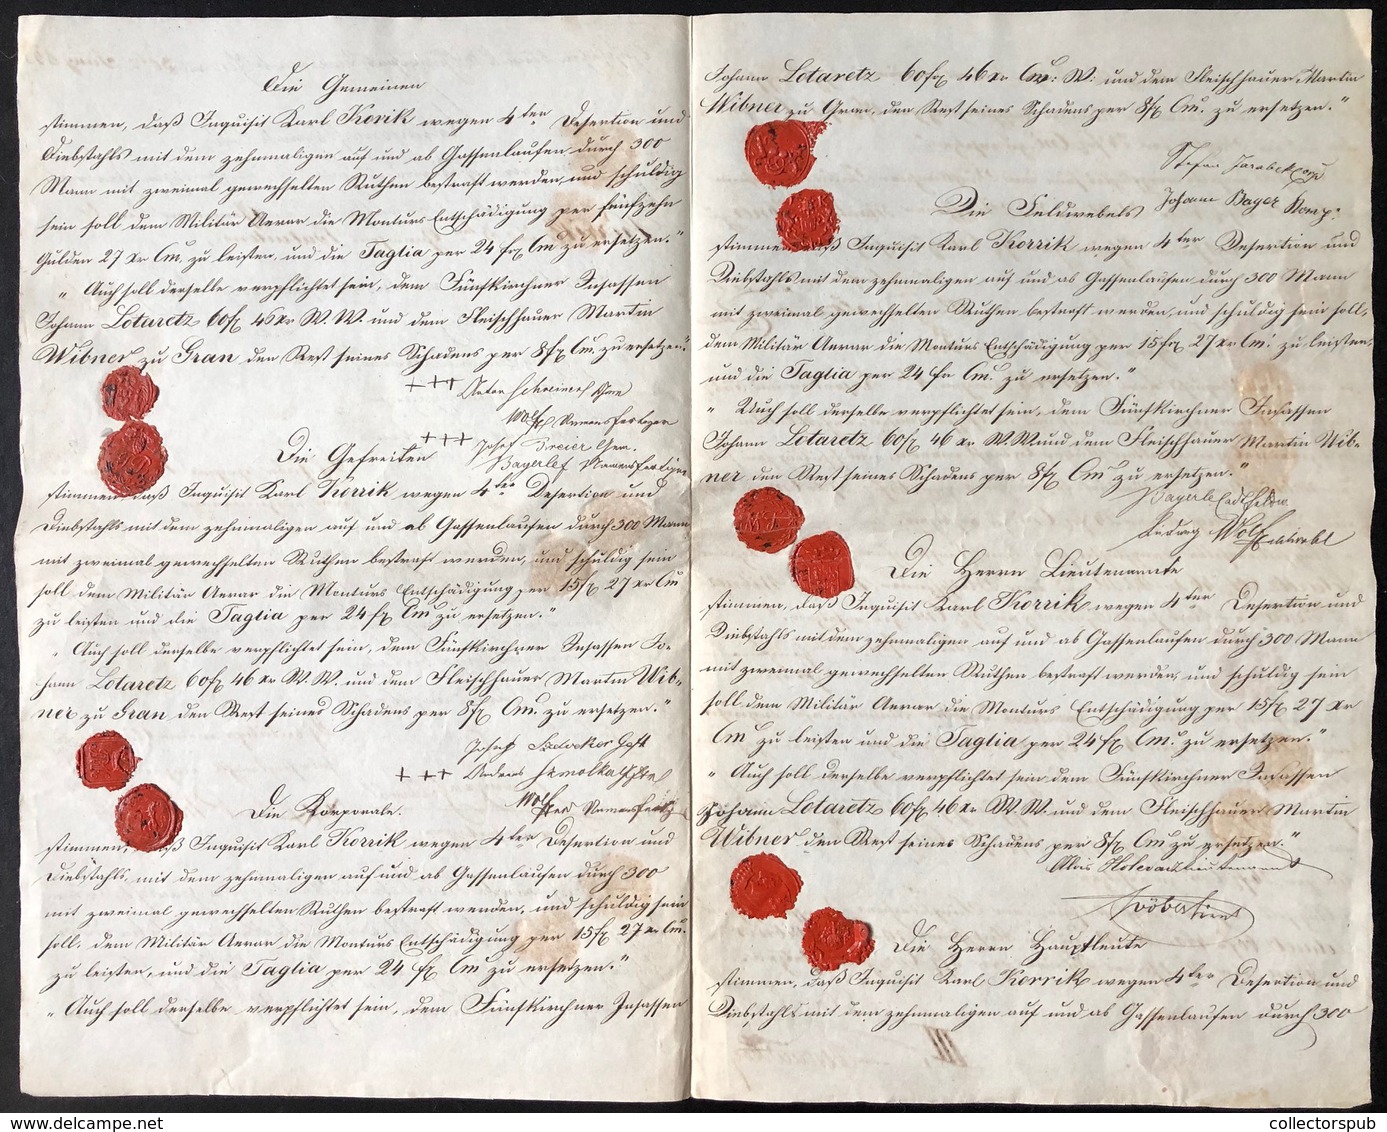 Die Gemeinen
stimmen, daß Inquisit Karl Korik wegen 4ter Desertion und
Diebstahls mit dem zehnmaligen auf und ab Gassenlaufen durch 300
Mann mit zweimal gewechselten Ruthen bestraft werden, und schuldig
sein soll dem Militär Aerar die Monturs Entschädigung per fünfzehn
Gulden 27 xr Cm. zu leisten, und die Taglia per 24 fx Cm zu ersetzen."
„ Auch soll derselbe verpflichtet sein, dem Fünfkirchner Insassen
Johann Lotaretz 60 fx 46 xr W. W. und dem Fleischhauer Martin
Wibner zu Gran den Rest seines Schadens per 8 fx Cm. zu ersetzen."
+++ Anton
Wolf Namensfertiger
Die Gefreiten +++ Josef Dreier Gem.
Bayerle Namensfertiger
stimmen, daß Inquisit Karl Korrik wegen 4ter Desertion und
Diebstahls mit dem zehnmaligen auf und ab Gassenlaufen durch 300 Mann
mit zweimal gewechselten Ruthen bestraft werden, und schuldig sein
soll dem Militär Aerar die Monturs Entschädigung per 15 fx 27 xr Cm
zu leisten und die Taglia per 24 fx Cm zu ersetzen."
„ Auch soll derselbe verpflichtet sein, dem Fünfkirchner Insassen Jo-
hann Lotaretz 60 fx 46 xr W. W. und dem Fleischhauer Martin Wib-
ner zu Gran den Rest seines Schadens per 8 fx Cm. zu ersetzen."
Josef Gefr
+++ Andreas Semolka Gefr
Wolf Namensfertiger
Die Korporale.
stimmen, daß Inquisit Karl Korrik wegen 4ter Desertion und
Diebstahls, mit dem zehnmaligen auf und ab Gassenlaufen durch 300
mit zweimal gewechselten Ruthen bestraft werden, und schuldig sein
soll, dem Militär Aerar die Monturs Entschädigung per 15 fx 27 xr Cm.
zu leisten, und die Taglia per 24 fx Cm zu ersetzen."
„ Auch soll derselbe verpflichtet sein, dem Fünfkirchner Insassen
Johann Lotaretz 60 fx 46 xr Cm: W: und dem Fleischhauer Martin
Wibner zu Gran, den Rest seines Schadens per 8 fx Cm. zu ersetzen."
Stefan
Johann Bayer Korp:
Die Feldwebels
stimmen, daß Inquisit Karl Korrik wegen 4ter Desertion und
Diebstahls mit dem zehnmaligen auf und ab Gassenlaufen durch 300 Mann
mit zweimal gewechselten Ruthen bestraft werden, und schuldig sein soll,
dem Militär Aerar die Monturs Entschädigung per 15 fx 27 xr Cm. zu leisten,
und die Taglia per 24 fx Cm. zu ersetzen."
„ Auch soll derselbe verpflichtet sein, dem Fünfkirchner Insassen
Johann Lotaretz 60 fx 46 xr W. W. und dem Fleischhauer Martin Wib-
ner den Rest seines Schadens per 8 fx Cm zu ersetzen."
Bayerle
Ludwig Wolf
Die Herrn Lieutenannte
stimmen, daß Inquisit Karl Korrik wegen 4ter Desertion und
Diebstahls mit dem zehnmaligen auf und ab Gassenlaufen durch 300 Mann
mit zweimal gewechselten Ruthen bestraft werden, und schuldig sein
soll dem Militär Aerar die Monturs Entschädigung per 15 fx 27 xr
Cm zu leisten und die Taglia per 24 fx Cm. zu ersetzen."
„ Auch soll derselbe verpflichtet sein dem Fünfkirchner Insassen
Johann Lotaretz 60 fx 46 xr W. W. und dem Fleischhauer Martin
Wibner den Rest seines Schadens per 8 fx Cm zu ersetzen."
Alois Lieutenannt
Die Herrn Hauptleute
stimmen, daß Inquisit Karl Korrik wegen 4ter Desertion und
Diebstahls mit dem zehnmaligen auf und ab Gassenlaufen durch 300
collectorspub.com